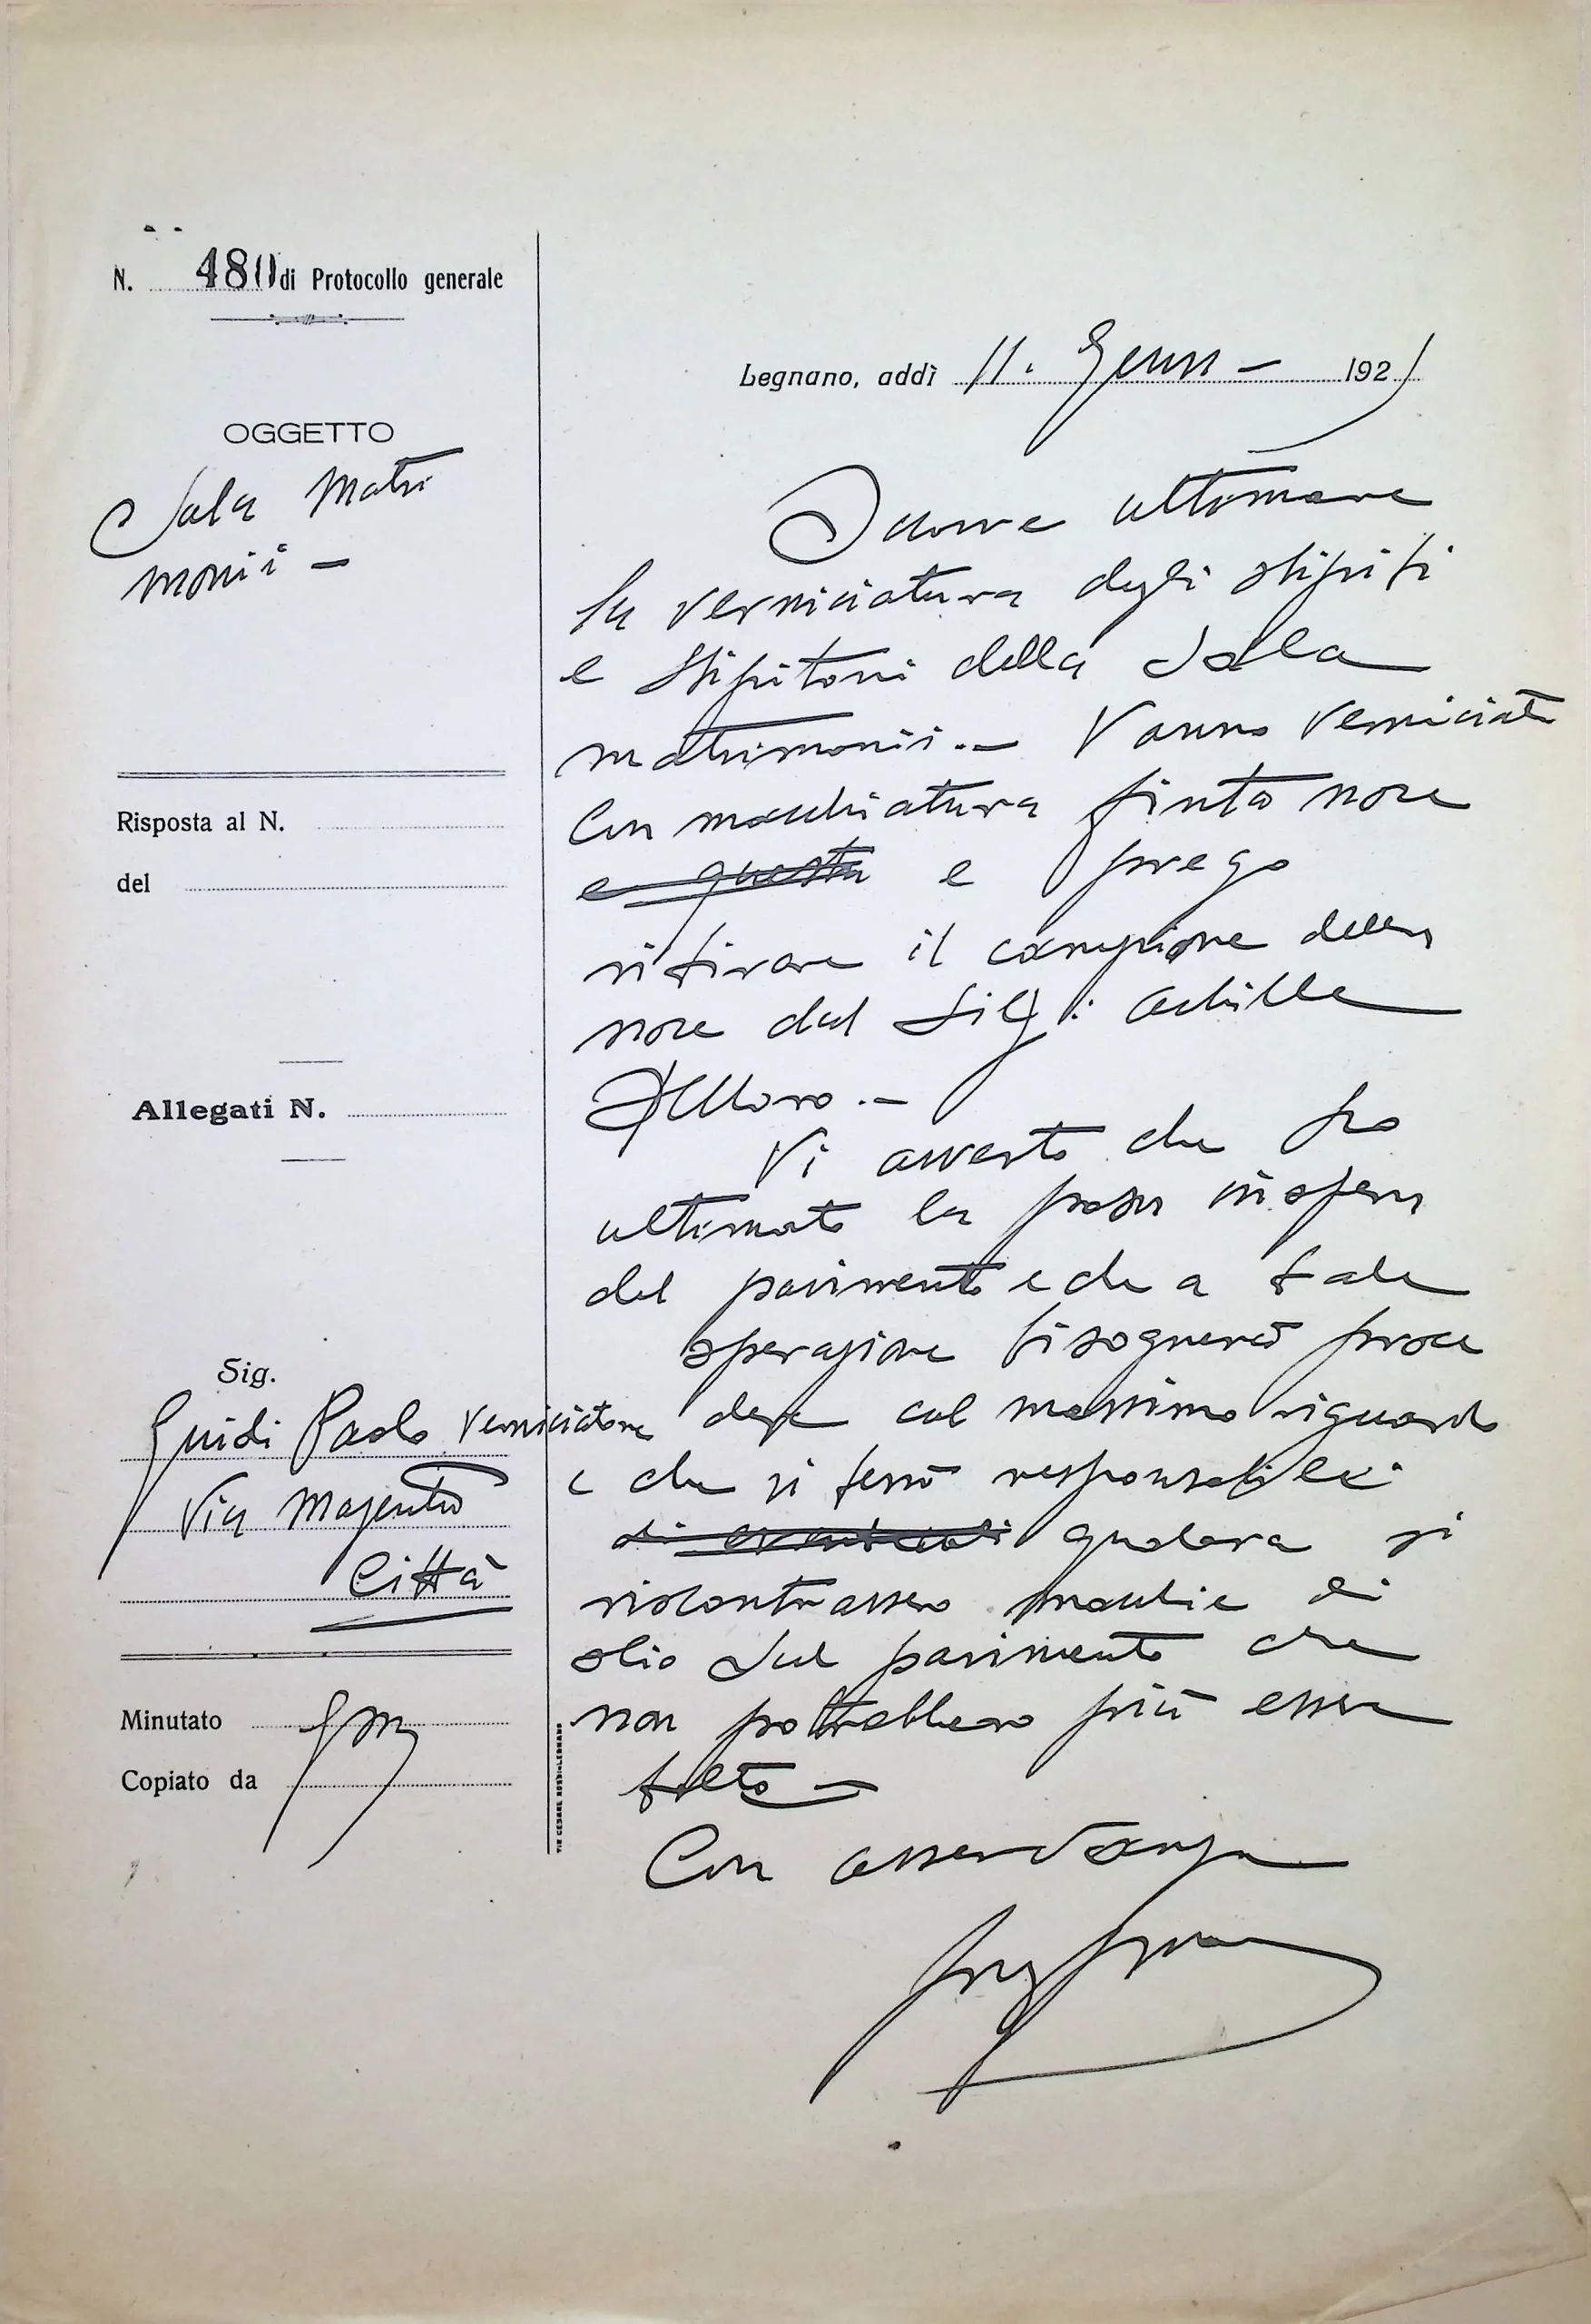 N. 480 di Protocollo generale
Legnano, addì 11. Genn - 1921
OGGETTO
Sala Matri
monii -
Occorre ultimare
la verniciatura degli stipiti
e stipitoni della Sala
matrimonii. - Vanno verniciati
con macchiatura finta noce
e questa e prego
ritirare il campione della
noce dal Sig: Achille
Dell'Moro. -
Vi avverto che fra
ultimata la posa in opera
del pavimento e che a tale
operazione bisognerà proce
dere col massimo riguardo
e che si terrà responsabile
di eventuali qualora si
riscontrassero macchie di
olio sul pavimento che
non potrebbero più esser
tolte -
Con osservanza
Risposta al N.
del
Allegati N.
Sig.
Guidi Paolo verniciatore
Via Magenta
Città
Minutato
Copiato da
TIP. CESARE ROSSI-LEGNANO